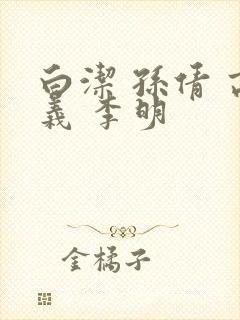 白潔 孫倩 高
義 李明
金橘子